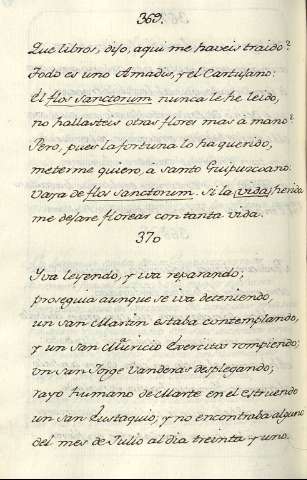 369.
Que libros, dijo, aqui me haveis traido?
Todo es uno Amadis, y el Cartujano:
El flos sanctorum nunca le he leido,
no hallasteis otras flores mas à mano?
Pero, pues la fortuna lo ha querido,
meterme quiero, à santo Guipuzcoano.
Vaya de flos sanctorum. Si la vida, herida
me dejare florear con tanta vida.
370
Yva leyendo, y iva reparando;
proseguia aunque se iva deteniendo,
un san Martin estaba contemplando,
y un san Mauricio Exercitos rompiendo;
un san Jorge vanderas desplegando;
rayo humano de Marte en el estruendo
un san Eustaquio; y no encontraba alguno
del mes de Julio al dia treinta y uno.